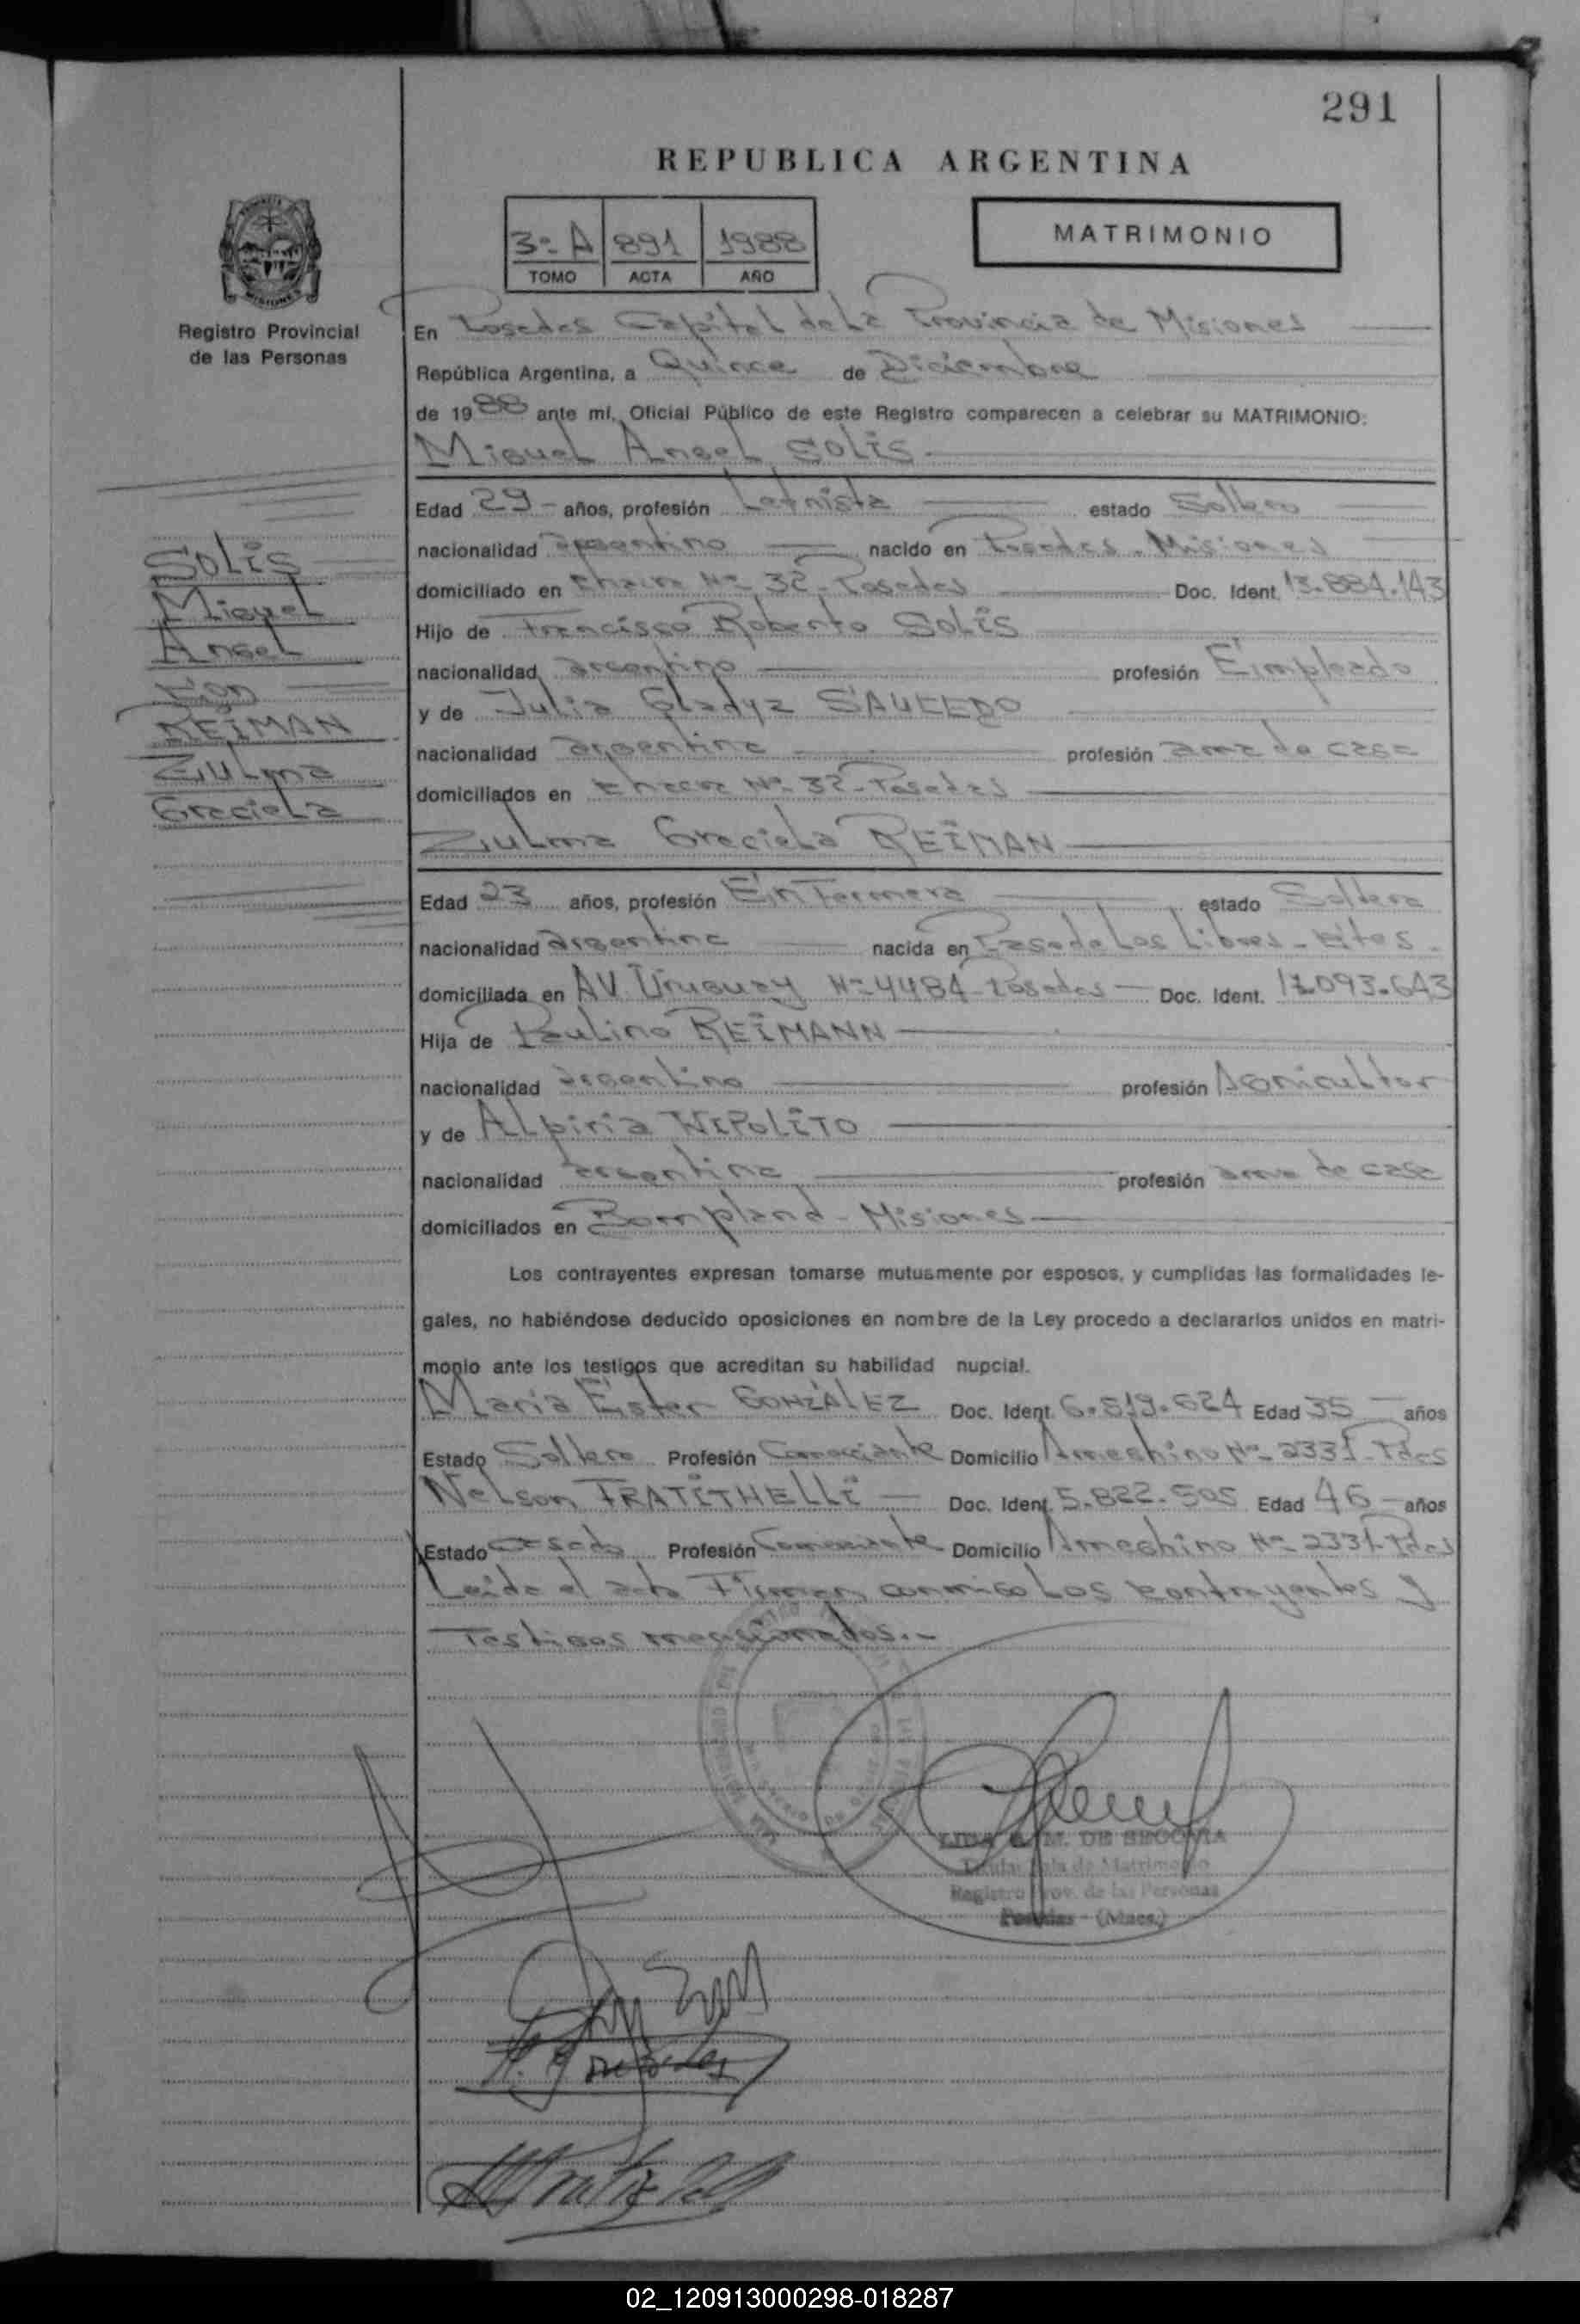 291
REPUBLICA ARGENTINA
3º A 891 1988
TOMO ACTA AÑO
MATRIMONIO
Registro Provincial
de las Personas
En Posadas Capital de La Provincia de Misiones
República Argentina, a Quince de Diciembre
de 1988 ante mí, Oficial Público de este Registro comparecen a celebrar su MATRIMONIO:
Miguel Angel SOLIS
Edad 29 años, profesión estado Soltero
nacionalidad argentino nacido en Posadas - Misiones
domiciliado en Nº 32 - Posadas Doc. Ident. 13.884.143
Hijo de Francisco Roberto SOLIS
nacionalidad argentino profesión Empleado
y de Julia Gladyz SAUCEDO
nacionalidad argentina profesión ama de casa
domiciliados en Chacra Nº 32 - Posadas
Zulma Graciela REIMAN
Edad 23 años, profesión Enfermera estado Soltera
nacionalidad argentina nacida en Paso de Los Libres -
domiciliada en AV. Uruguay Nº 4484 - Posadas Doc. Ident. 17.093.643
Hija de Paulino REIMANN
nacionalidad argentino profesión Agricultor
y de Alpiria HIPOLITO
nacionalidad argentina profesión ama de casa
domiciliados en Bompland - Misiones
Los contrayentes expresan tomarse mutuamente por esposos, y cumplidas las formalidades le-
gales, no habiéndose deducido oposiciones en nombre de la Ley procedo a declararlos unidos en matri-
monio ante los testigos que acreditan su habilidad nupcial.
María Ester GONZÁLEZ Doc. Ident. 6.519.624 Edad 35 años
Estado Soltera Profesión Comerciante Domicilio Ameghino Nº 2331 - Pdas
Nelson FRATITHELLI Doc. Ident. 5.822.505 Edad 46 años
Estado Casado Profesión Comerciante Domicilio Ameghino Nº 2331 - Pdas
Leida el acta Firman conmigo Los contrayentes y
Testigos mencionados.-
SOLIS
Miguel
Angel
con
REIMAN
Zulma
Graciela
M. DE SEGOVIA
Titular Sala de Matrimonio
Registro Prov. de las Personas
Posadas - (Mnes.)
02_120913000298-018287